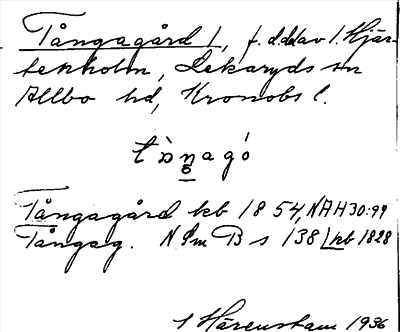 Tångagård 1, f. d. ddav 1. Hjär-
tenholm, Lekaryds sn
Allbo hd, Kronobs l.
Tångagård kb 1854, NAH 30:99
Tångag. N Sm B s 138 kb 1828
I Härenstam 1936